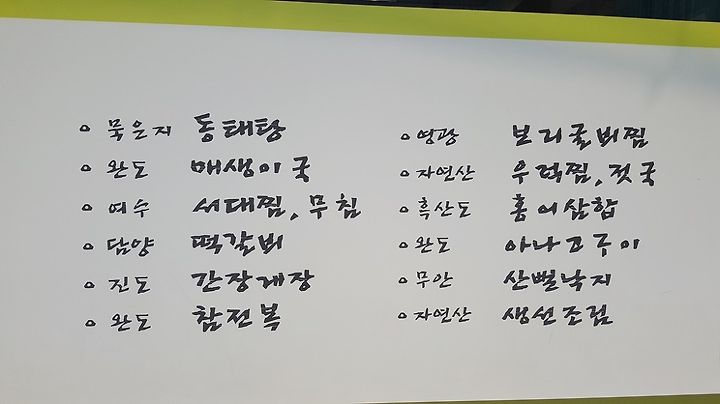 ○ 묵은지 동태탕
○ 완도 매생이국
○ 여수 서대찜, 무침
○ 담양 떡갈비
○ 진도 간장게장
○ 완도 참전복
○ 영광 보리굴비찜
○ 자연산 우럭찜, 젓국
○ 흑산도 홍어삼합
○ 완도 아나고구이
○ 무안 산뻘낙지
○ 자연산 생선조림